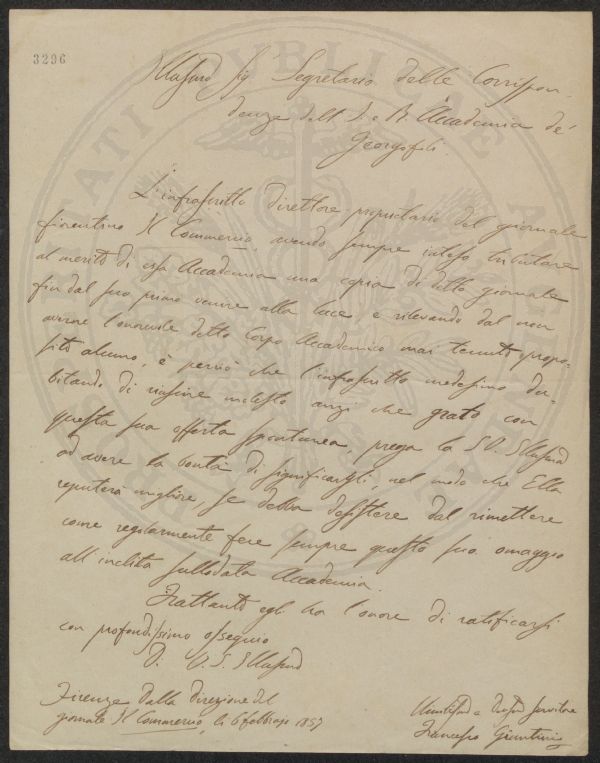 3296
Illmo Sig Segretario delle Corrispon-
denze dell' I. e R. Accademia de'
Georgofili.
L'infrascritto direttore proprietario del giornale
fiorentino Il Commercio, avendo sempre inteso tributare
al merito di essa Accademia una copia di detto giornale
fin dal suo primo venire alla luce, e rilevando dal non
averne l'onorevole detto Corpo Accademico mai tenuto propo-
sito alcuno, è perciò che l'infrascritto medesimo du-
bitando di riuscire molesto anzi che grato con
questa sua offerta spontanea, prega la S.V. Illma
ad avere la bontà di significargli, nel modo che Ella
reputerà migliore, se debba desistere dal rimettere
come regolarmente fece sempre questo suo omaggio
all'inclita sullodata Accademia.
Frattanto egli ha l'onore di ratificarsi
con profondissimo ossequio
Di V.S. Illma
Firenze dalla direzione del
giornale Il Commercio, li 6 febbraio 1857
Umilissimo e Devmo servitore
Francesco Giuntini
PROSPERITATI PUBLICAE AUGENDAE